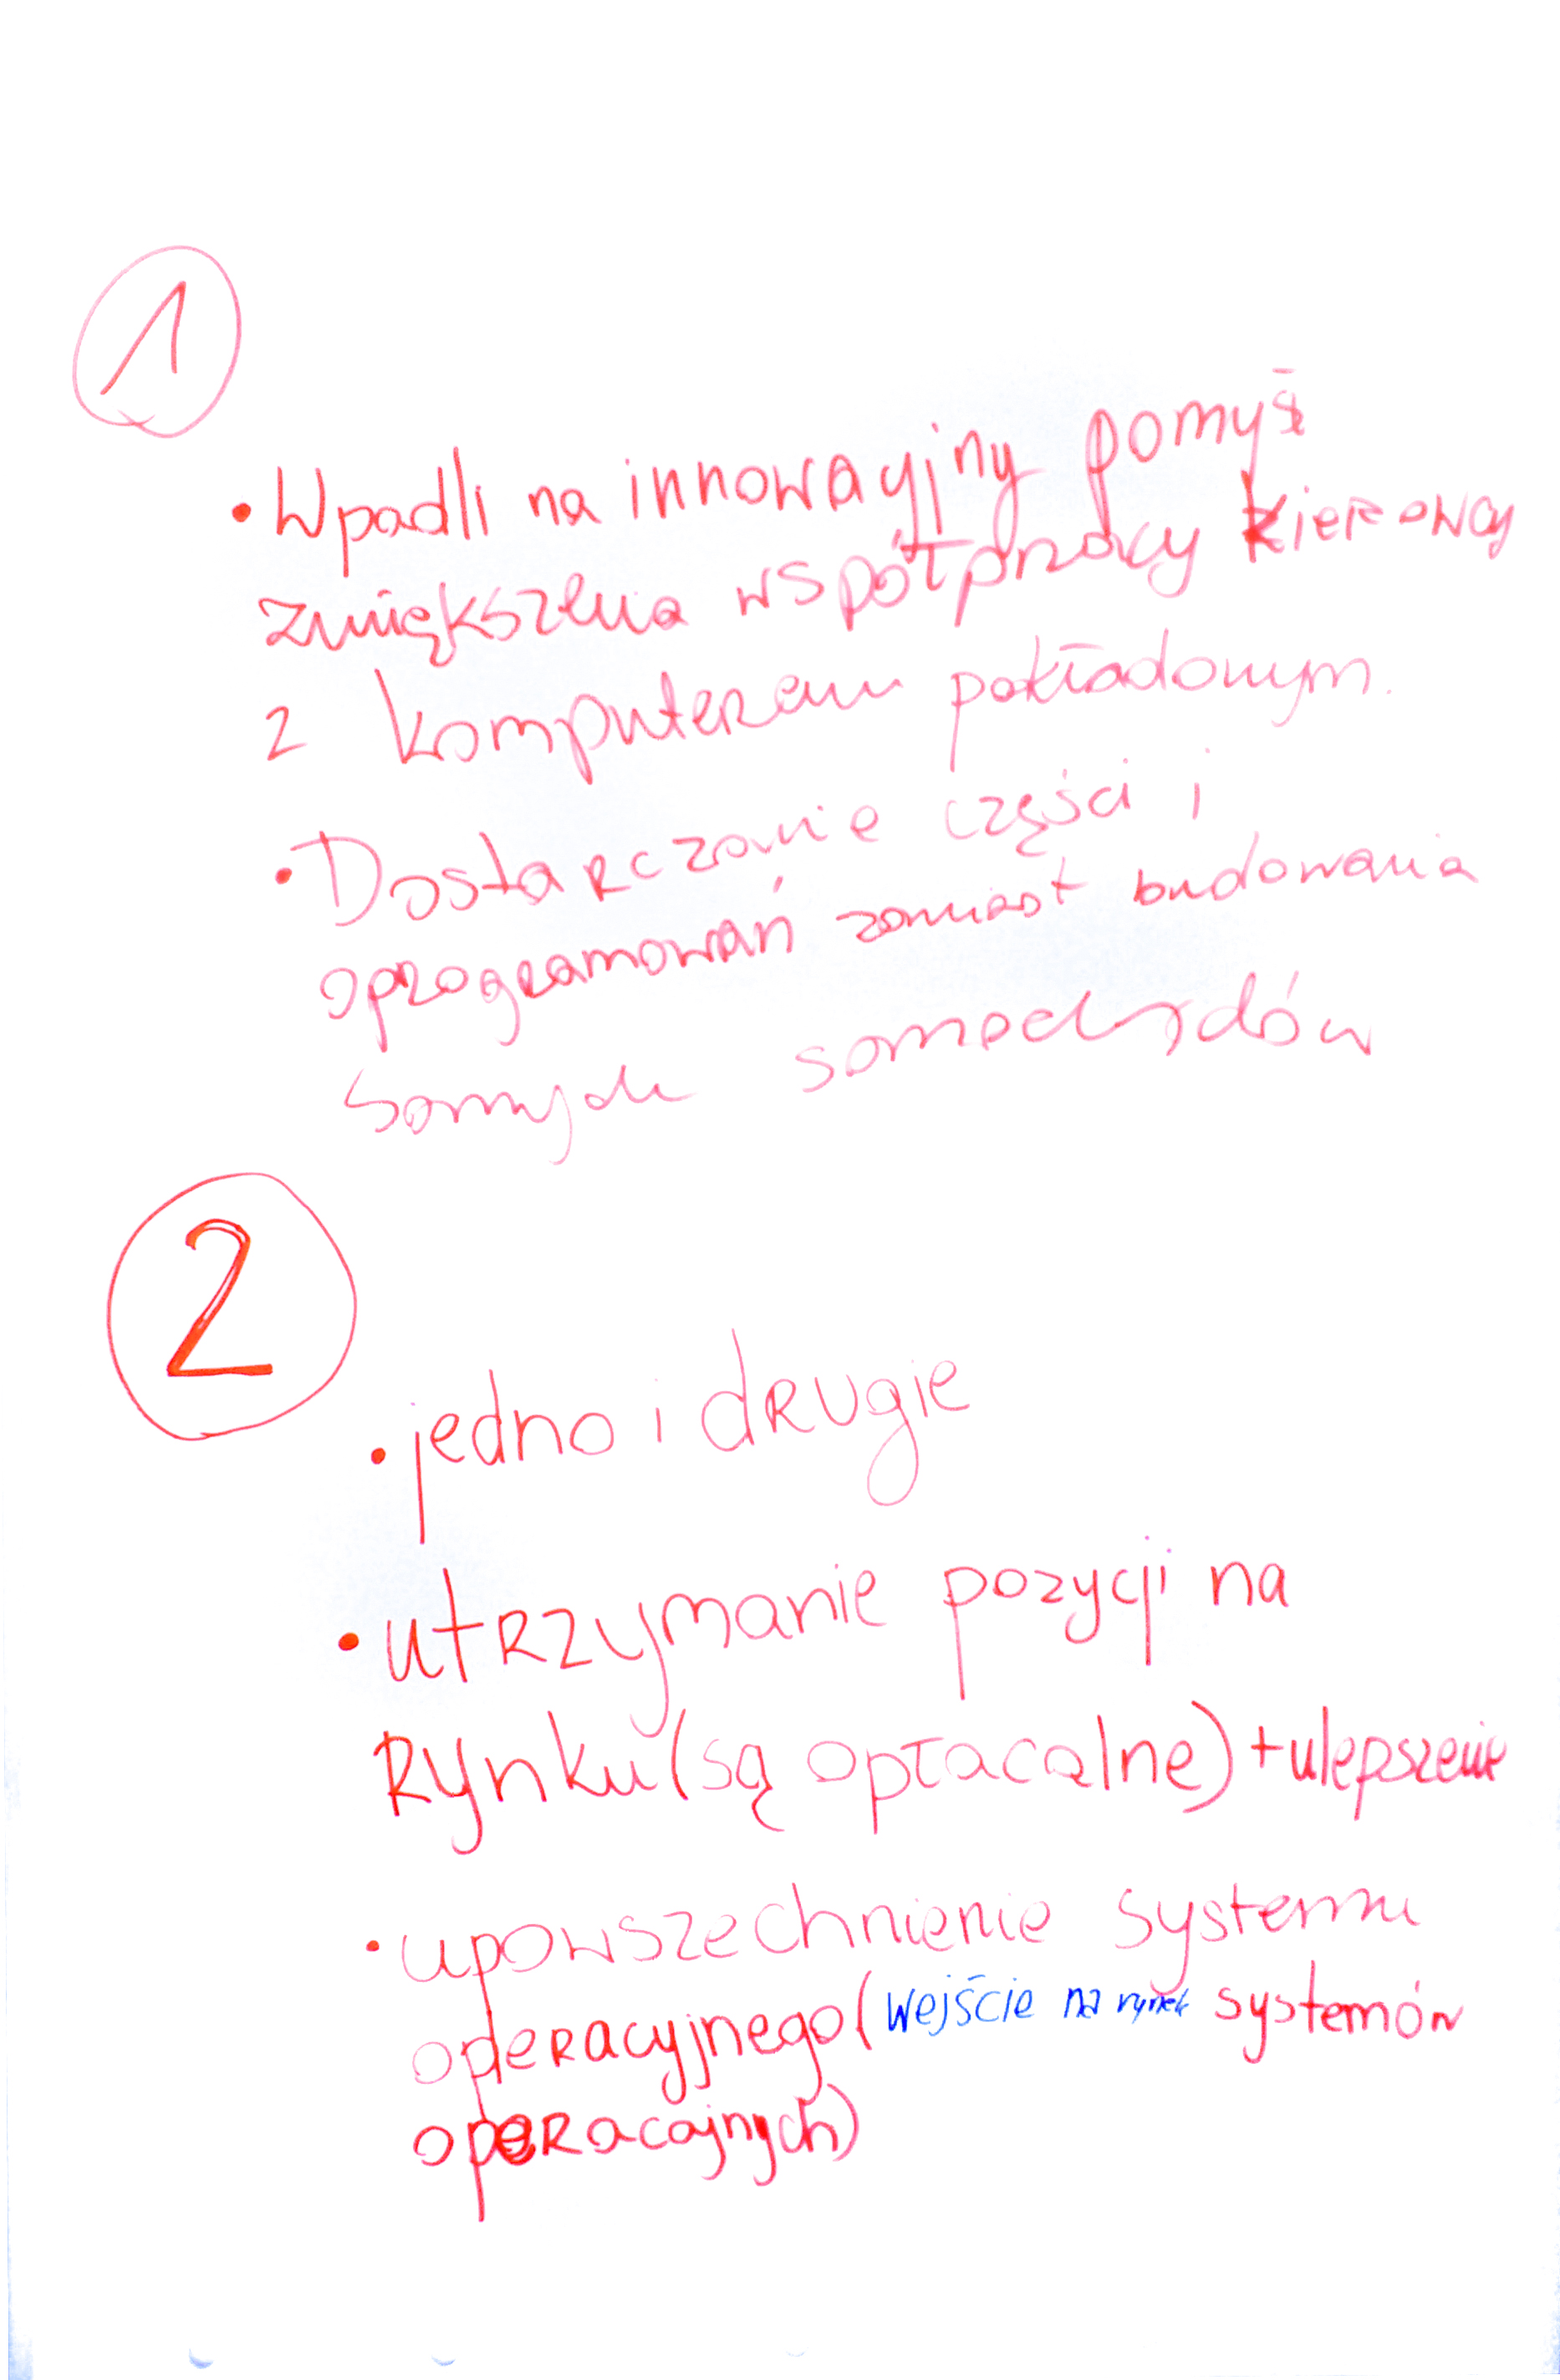 1
• Wpadli na innowacyjny pomysł
zwiększenia współpracy kierowcy
z komputerem pokładowym.
• Dostarczanie części i
oprogramowań zamiast budowania
samych samochodów
2
• jedno i drugie
• utrzymanie pozycji na
Rynku (są opłacalne) + ulepszenie
• upowszechnienie systemu
operacyjnego (wejście na rynek systemów
operacojnych)